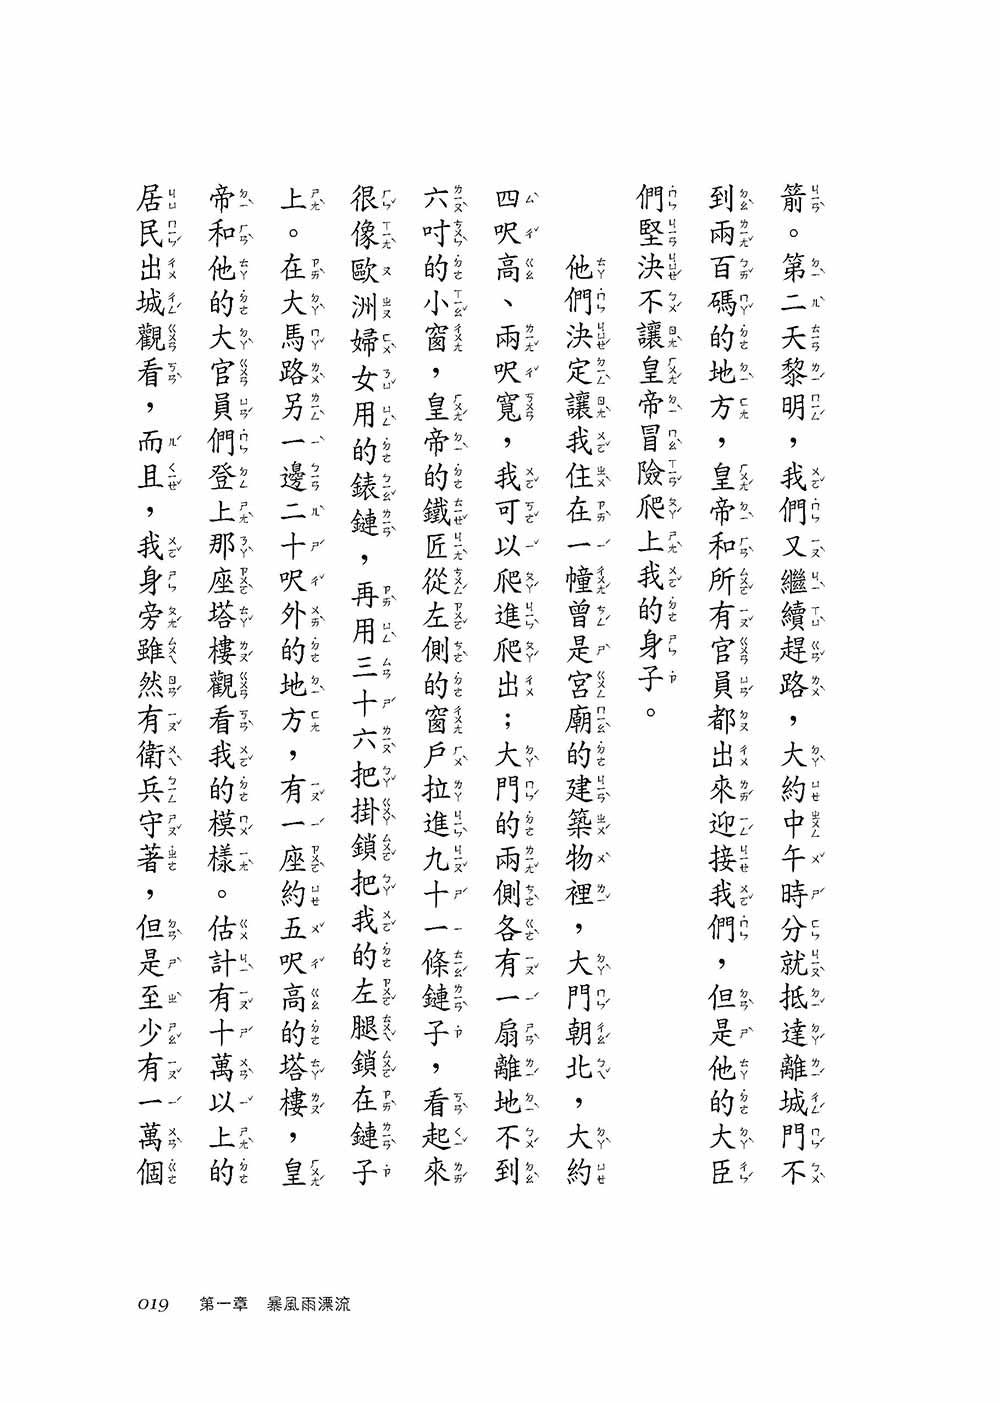 箭。第二天黎明，我們又繼續趕路，大約中午時分就抵達離城門不
到兩百碼的地方，皇帝和所有官員都出來迎接我們，但是他的大臣
們堅決不讓皇帝冒險爬上我的身子。
他們決定讓我住在一幢曾是宮廟的建築物裡，大門朝北，大約
四呎高、兩呎寬，我可以爬進爬出；大門的兩側各有一扇離地不到
六吋的小窗，皇帝的鐵匠從左側的窗戶拉進九十一條鏈子，看起來
很像歐洲婦女用的錶鏈，再用三十六把掛鎖把我的左腿鎖在鏈子
上。在大馬路另一邊二十呎外的地方，有一座約五呎高的塔樓，皇
帝和他的大官員們登上那座塔樓觀看我的模樣。估計有十萬以上的
居民出城觀看，而且，我身旁雖然有衛兵守著，但是至少有一萬個
019 第一章 暴風雨漂流